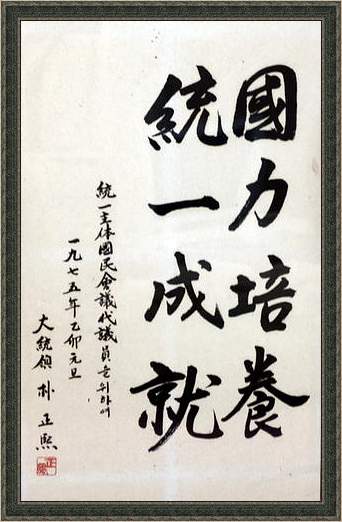 國力培養
統一成就
統一主体國民會議代議員을 위하여
一九七五年乙卯元旦
大統領 朴正熙